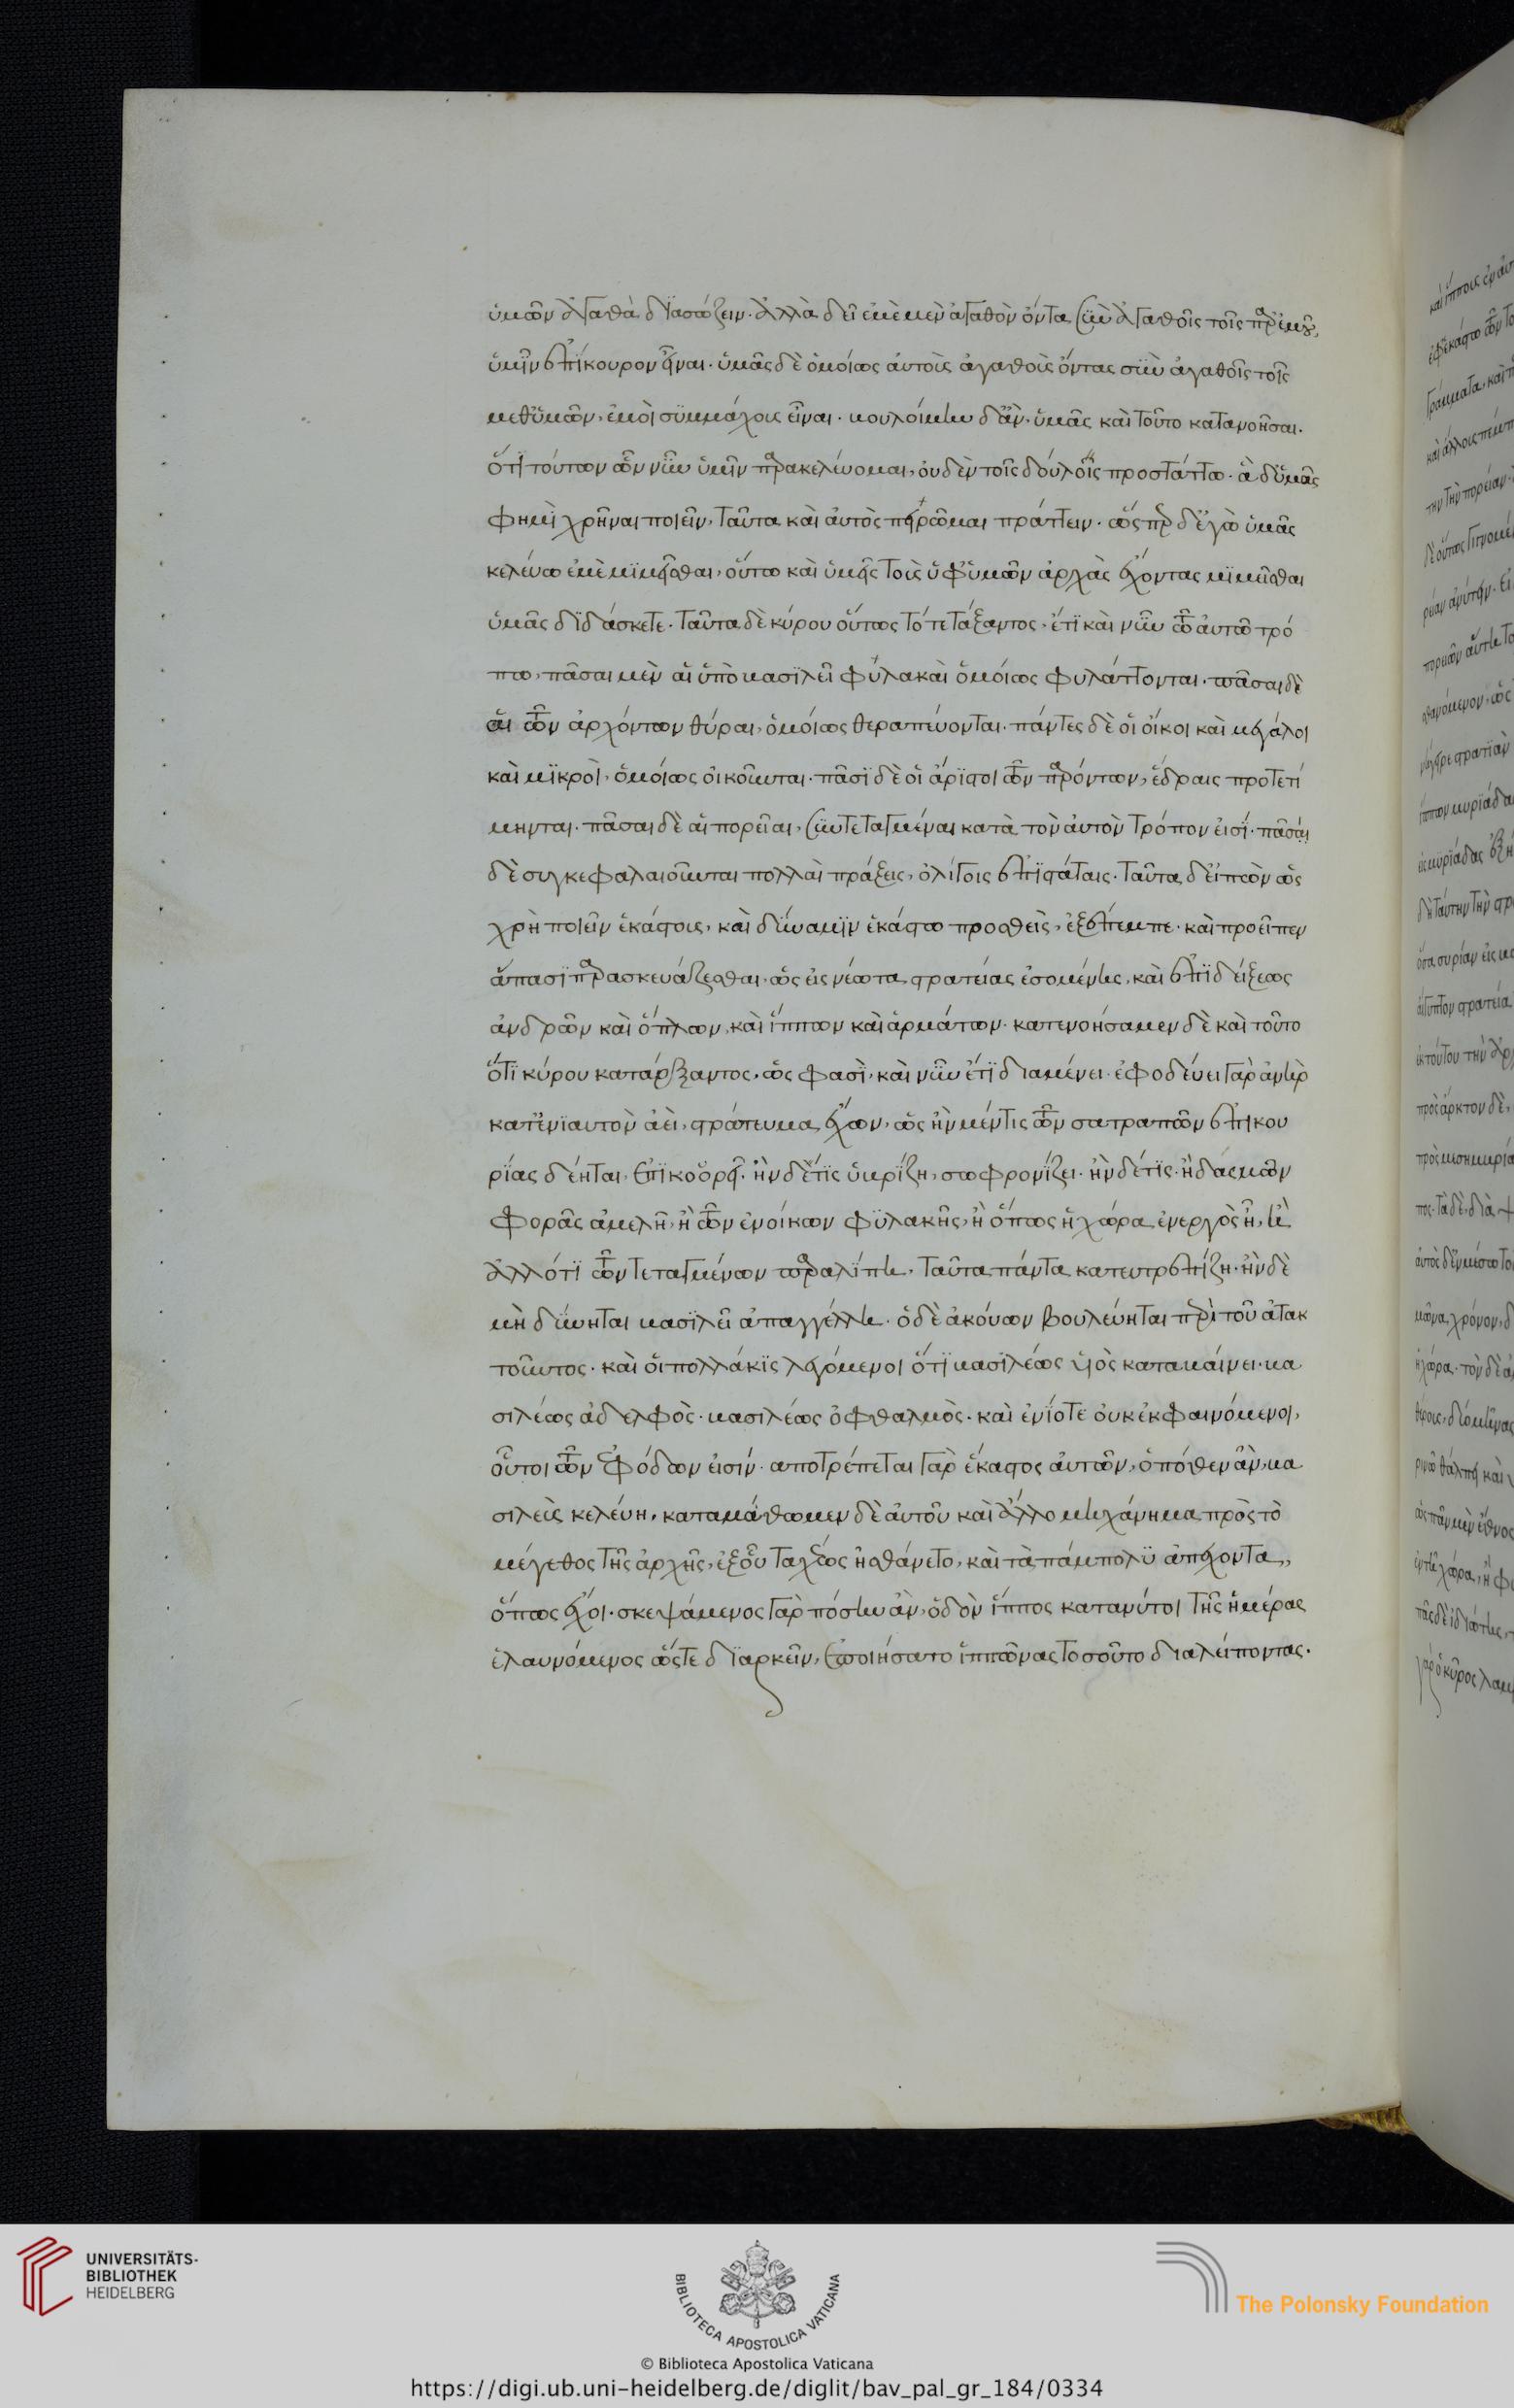 ὑμῶν ἀγαθὰ διασώζειν· ἀλλὰ δεῖ ἐμὲ μὲν ἀγαθὸν ὄντα σὺν ἀγαθοῖς τοῖς παρ' ἐμοῦ,
ὑμῖν ἐπίκουρον εἶναι· ὑμᾶς δὲ ὁμοίως αὐτοὺς ἀγαθοὺς ὄντας σὺν ἀγαθοῖς τοῖς
μεθ' ὑμῶν, ἐμοὶ συμμάχους εἶναι· βουλοίμην δ' ἂν ὑμᾶς καὶ τοῦτο κατανοῆσαι·
ὅτι τούτων ὧν νῦν ὑμῖν παρακελεύομαι, οὐδὲν τοῖς δούλοις προστάττω· ἃ δ' ὑμᾶς
φημὶ χρῆναι ποιεῖν, ταῦτα καὶ αὐτὸς πειρῶμαι πράττειν· ὥσπερ δ' ἐγὼ ὑμᾶς
κελεύω ἐμὲ μιμεῖσθαι, οὕτω καὶ ὑμεῖς τοὺς ὑφ' ὑμῶν ἀρχὰς ἔχοντας μιμεῖσθαι
ὑμᾶς διδάσκετε· ταῦτα δὲ κύρου οὕτως τότε τάξαντος, ἔτι καὶ νῦν τῷ αὐτῷ τρό
πω, πᾶσαι μὲν αἱ ὑπὸ βασιλεῖ φυλακαὶ ὁμοίως φυλάττονται· πᾶσαι δὲ
αἱ τῶν ἀρχόντων θύραι, ὁμοίως θεραπεύονται· πάντες δὲ οἱ οἶκοι καὶ μεγάλοι
καὶ μικροὶ, ὁμοίως οἰκοῦνται· πᾶσι δὲ οἱ ἄριστοι τῶν παρόντων, ἕδραις προτετί
μηνται· πᾶσαι δὲ αἱ πορεῖαι, συντεταγμέναι κατὰ τὸν αὐτὸν τρόπον εἰσί· πᾶσαι
δὲ συγκεφαλαιοῦνται πολλαὶ πράξεις, ὀλίγοις ἐπιστάταις· ταῦτα δ' εἰπὼν ὡς
χρὴ ποιεῖν ἑκάστοις, καὶ δύναμιν ἑκάστω προσθεὶς, ἐξέπεμπε· καὶ προεῖπεν
ἅπασι παρασκευάζεσθαι, ὡς εἰς νέωτα στρατείας ἐσομένης, καὶ ἐπιδείξεως
ἀνδρῶν καὶ ὅπλων, καὶ ἵππων καὶ ἁρμάτων· κατενοήσαμεν δὲ καὶ τοῦτο
ὅτι κύρου κατάρξαντος, ὥς φασὶ, καὶ νῦν ἔτι διαμένει· ἐφοδεύει γὰρ ἀνὴρ
κατ' ἐνιαυτὸν ἀεὶ, στράτευμα ἔχων, ὡς ἢν μέν τις τῶν σατραπῶν ἐπικου
ρίας δέηται, ἐπικουρῇ· ἢν δέ τις ὑβρίζη, σωφρονίζει· ἢν δέ τις ἢ δασμῶν
φορᾶς ἀμελῆ, ἢ τῶν ἐνοίκων φυλακῆς, ἢ ὅπως ἡ χώρα ἐνεργὸς ἦ, ἢ
ἄλλό τι τῶν τεταγμένων παραλίπη, ταῦτα πάντα κατευτρεπίζη· ἢν δὲ
μὴ δύνηται βασιλεῖ ἀπαγγέλλη· ὁ δὲ ἀκούων βουλεύηται περὶ τοῦ ἀτακ
τοῦντος· καὶ οἱ πολλάκις λεγόμενοι ὅτι βασιλέως υἱὸς καταβαίνει· βα
σιλέως ἀδελφὸς· βασιλέως ὀφθαλμὸς· καὶ ἐνίοτε οὐκ ἐκφαινόμενοι,
οὗτοι τῶν ἐφόδων εἰσίν· ἀποτρέπεται γὰρ ἕκαστος αὐτῶν, ὁπόθεν ἂν βα
σιλεὺς κελεύη, καταμάθωμεν δὲ αὐτοῦ καὶ ἄλλο μηχάνημα πρὸς τὸ
μέγεθος τῆς ἀρχῆς, ἐξ οὗ ταχέως ᾐσθάνετο, καὶ τὰ πάμπολυ ἀπέχοντα,
ὅπως ἔχοι· σκεψάμενος γὰρ πόσην ἂν ὁδὸν ἵππος κατανύτοι τῆς ἡμέρας
ἐλαυνόμενος ὥστε διαρκεῖν, ἐποιήσατο ἱππῶνας τοσοῦτο διαλείποντας·
UNIVERSITÄTS-
BIBLIOTHEK
HEIDELBERG
BIBLIOTECA APOSTOLICA VATICANA
The Polonsky Foundation
© Biblioteca Apostolica Vaticana
https://digi.ub.uni-heidelberg.de/diglit/bav_pal_gr_184/0334